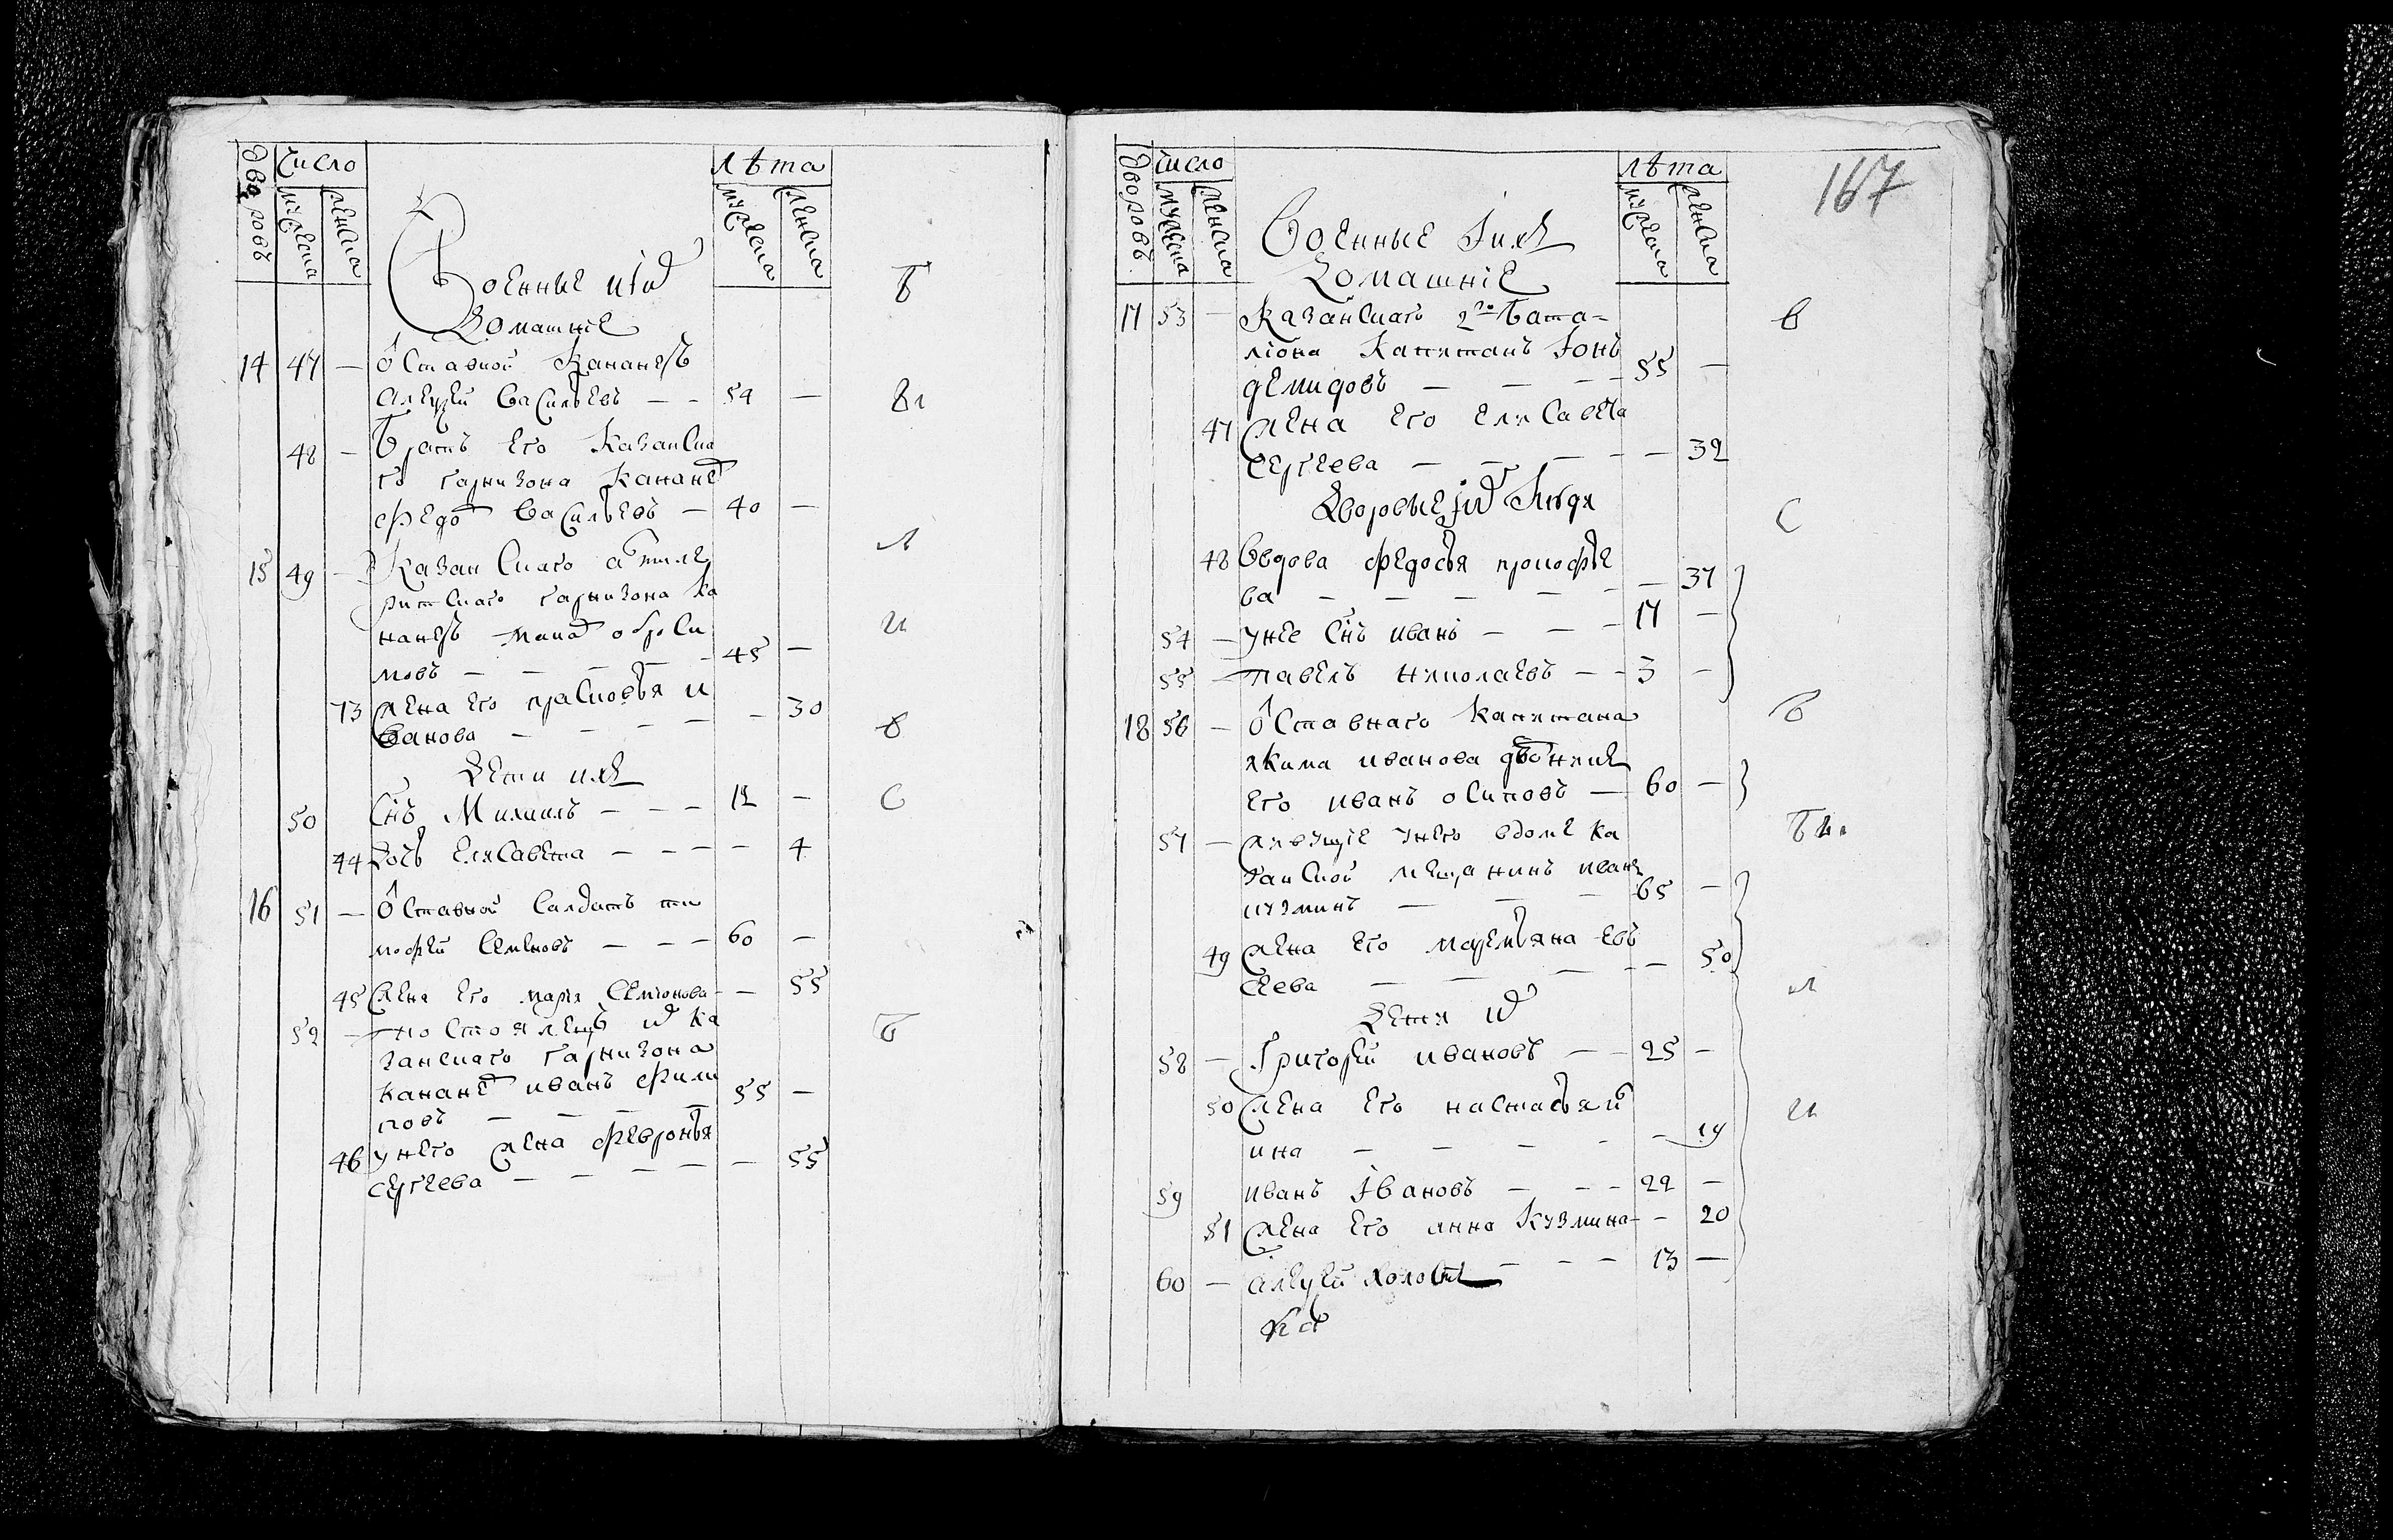 Дворовъ
Число
мужеска
женска
лѣта
мужеска
женска
Военные и их
Домашние
14 47 — Отставной Кананеръ
алексей васильевъ — — 54 —
48 — братъ его казанска
го гарнизона канане
федо васильевъ — 40 —
15 49 — Казанскаго артиле
рискаго гарнизона ка
нанеръ
мовъ — — — — 45 —
73 жена его прасковья и
ванова — — — — 30
Дети их
50 Снъ Михаилъ — — — 12 —
44 Дочь елисавета — — — — 4
16 51 — Отставной Салдатъ ти
мофей Семеновъ — — — 60 —
45 жена его марья Семионова — — 55
52 — постоялецъ их ка
занскаго гарнизона
канане иванъ фили
повъ — — — — 55 —
46 у него жена февронья
сергеева — — — — — 55
В
Ві
Л
и
в
С
В
167
Дворовъ
число
мужеска
женска
лѣта
мужеска
женска
Военные Iих
Домашніе
17 53 — Казанскаго 2го Бата=
ліона Капитанъ Iонъ
демидовъ — — — 55 —
47 жена его елисавета
сергеева — — — — 39
Дворовые их Люди
48 Вдова федосья прокофье
ва — — — — — 37
54 — у нее Снъ иванъ — — — 17 —
55 — павелъ николаевъ — — 3 —
18 56 — Отставнаго капитана
якима иванова дворник
его иванъ осиповъ — 60 —
57 — живущіе у него вдоме ка
занской мещанинъ иванъ
кузминъ — — — 65 —
49 жена его маремьяна ев
сеева — — — — — 50
Дети их
58 — Григорей ивановъ — — 25 —
50 жена его настасья
ина — — — — — 19
59 иванъ Iвановъ — — — 22 —
51 жена его анна кузмина — — 20
60 — алексей холост — — — 13 —
в
С
В
л
и